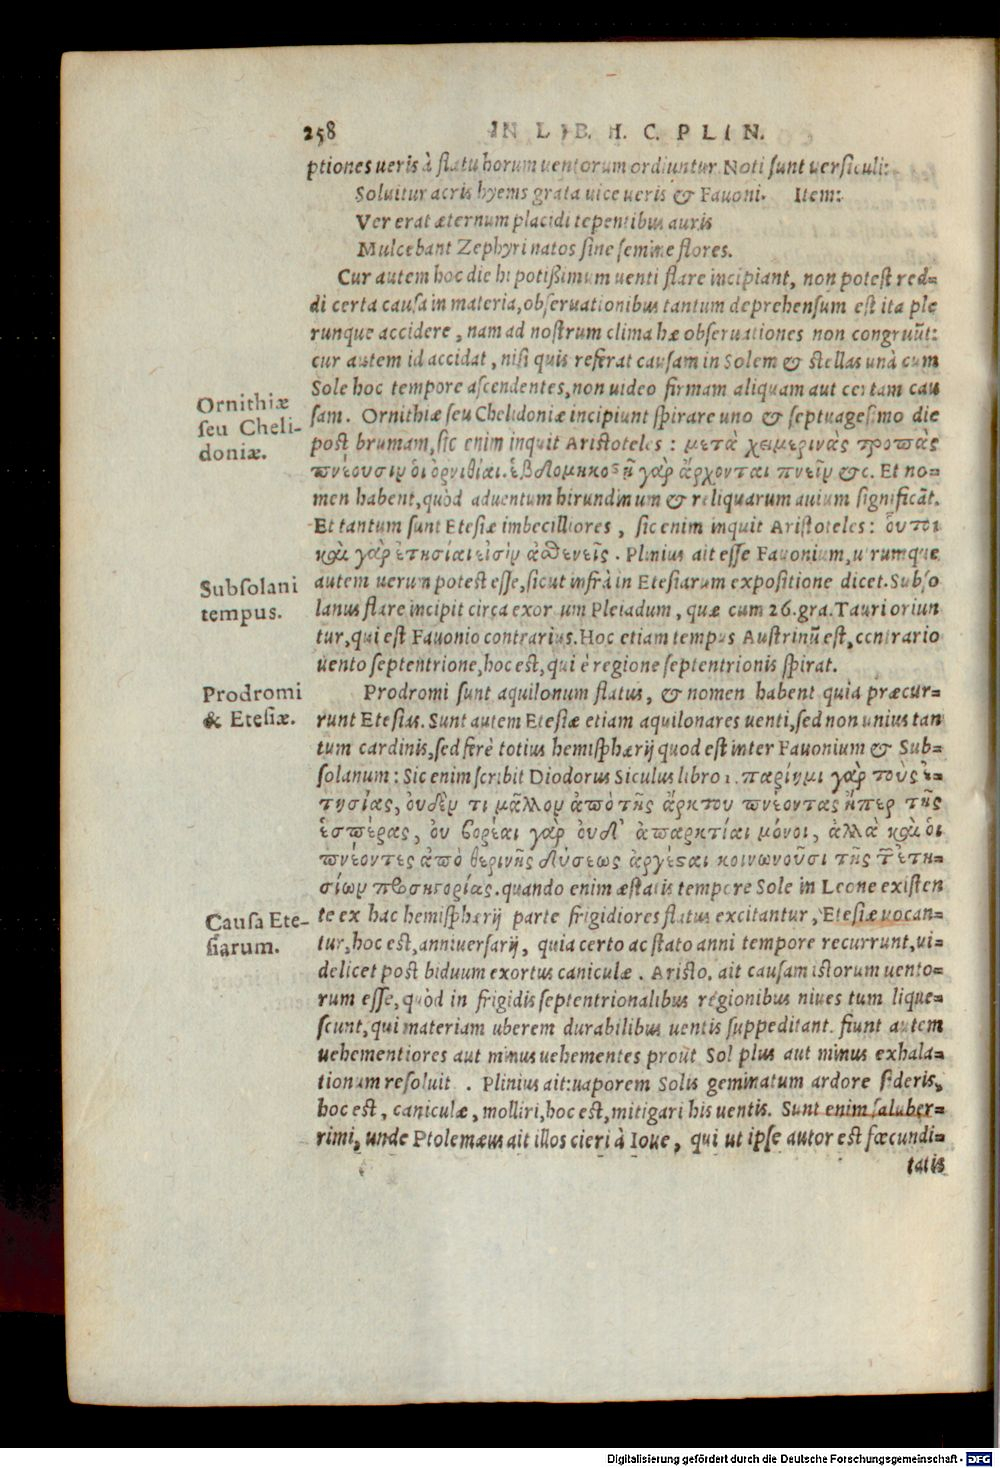 258 IN LIB. II. C. PLIN.
ptiones ueris à flatu horum uentorum ordiuntur. Noti sunt uersiculi:
Soluitur acris hyems grata uice ueris & Fauoni. Item:
Ver erat æternum placidi tepentibus auris
Mulcebant Zephyri natos sine semine flores.
Cur autem hoc die hi potißimum uenti flare incipiant, non potest red=
di certa causa in materia, obseruationibus tantum deprehensum est ita ple
runque accidere, nam ad nostrum clima hæ obseruationes non congruũt:
cur autem id accidat, nisi quis referat causam in Solem & stellas unà cum
Sole hoc tempore ascendentes, non uideo firmam aliquam aut certam cau
Ornithiæ
seu Cheli-
doniæ.
sam. Ornithiæ seu Chelidoniæ incipiunt spirare uno & septuagesimo die
post brumam, sic enim inquit Aristoteles: μετὰ χειμερινὰς τροπὰς
πνέουσιν ὁι ὀρνιθίαι. ἑβδομηκοςῇ γὰρ ἄρχονται πνεῖν &c. Et no=
men habent, quòd aduentum hirundinum & reliquarum auium significãt.
Et tantum sunt Etesiæ imbecilliores, sic enim inquit Aristoteles: οὗτοι
καὶ γὰρ ἐτησίαι εἰσὶν ἀσθενεῖς. Plinius ait esse Fauonium, utrumque
Subsolani
tempus.
autem uerum potest esse, sicut infrà in Etesiarum expositione dicet. Subso
lanus flare incipit circa exortum Pleiadum, quæ cum 26. gra. Tauri oriun
tur, qui est Fauonio contrarius. Hoc etiam tempus Austrinũ est, contrario
uento septentrione, hoc est, qui è regione septentrionis spirat.
Prodromi
& Etesiæ.
Prodromi sunt aquilonum flatus, & nomen habent quia præcur=
runt Etesias. Sunt autem Etesiæ etiam aquilonares uenti, sed non unius tan
tum cardinis, sed ferè totius hemisphærij quod est inter Fauonium & Sub=
solanum: Sic enim scribit Diodorus Siculus libro 1. παρίημι γὰρ τοὺς ἐ-
τησίας, ὀυδὲν τι μᾶλλον ἀπὸ τῆς ἄρκτου πνέοντας ἤπερ τῆς
ἑσπέρας, ὀυ βορέαι γὰρ ὀυδ' ἀπαρκτίαι μόνοι, ἀλλὰ καὶ ὁι
πνέοντες ἀπὸ θερινῆς δύσεως ἀργέςαι κοινωνοῦσι τῆς τῶν ἐτη-
σίων προσηγορίας. quando enim æstatis tempore Sole in Leone existen
Causa Ete-
siarum.
te ex hac hemisphærij parte frigidiores flatus excitantur, Etesiæ uocan=
tur, hoc est, anniuersarij, quia certo ac stato anni tempore recurrunt, ui=
delicet post biduum exortus caniculæ. Aristo. ait causam istorum uento=
rum esse, quòd in frigidis septentrionalibus regionibus niues tum lique=
scunt, qui materiam uberem durabilibus uentis suppeditant. fiunt autem
uehementiores aut minus uehementes prout Sol plus aut minus exhala=
tionum resoluit. Plinius ait: uaporem Solis geminatum ardore sideris,
hoc est, caniculæ, molliri, hoc est, mitigari his uentis. Sunt enim saluber=
rimi, unde Ptolemæus ait illos cieri à Ioue, qui ut ipse autor est fœcundi=
tatis
Digitalisierung gefördert durch die Deutsche Forschungsgemeinschaft - DFG